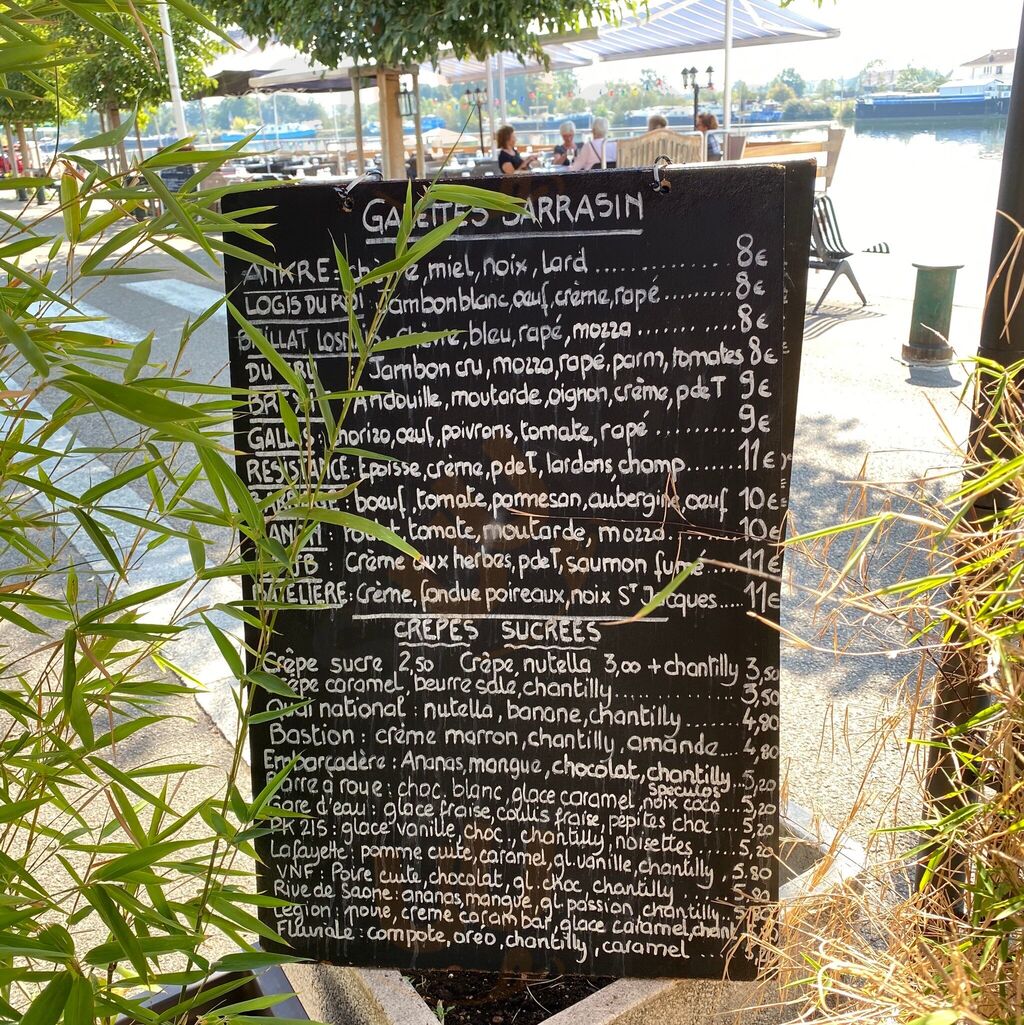 GALETTES SARRASIN
ANKRE: chèvre, miel, noix, lard .......... 8€
LOGIS DU ROI Jambon blanc, œuf, crème, rapé ........ 8€
bleu, rapé, mozza ........ 8€
DU Jambon cru, mozza, rapé, parm, tomates 8€
Andouille, moutarde, oignon, crème, p de T 9€
chorizo, œuf, poivrons, tomate, rapé ........ 9€
RESISTANCE: Epoisse, crème, p de T, lardons, champ ....... 11€
bœuf, tomate, parmesan, aubergine, œuf 10€
tomate, moutarde, mozza ........ 10€
: Crème aux herbes, p de T, saumon fumé 11€
BATELIERE: Crème, fondue poireaux, noix St Jacques .... 11€
CRÊPES SUCREES
Crêpe sucre 2,50 Crêpe, nutella 3,00 + chantilly 3,50
Crêpe caramel, beurre salé, chantilly .......... 3,50
Quai national : nutella, banane, chantilly ...... 4,80
Bastion : crème marron, chantilly, amande ... 4,80
Embarcadère : Ananas, mangue, chocolat, chantilly . 5,20
speculos
Barre à roue : choc. blanc, glace caramel, noix coco ... 5,20
Gare d'eau : glace fraise, coulis fraise, pépites choc .... 5,20
PK 215 : glace vanille, choc, chantilly, noisettes ...... 5,20
Lafayette : pomme cuite, caramel, gl. vanille, chantilly . 5.80
VNF : Poire cuite, chocolat, gl. choc, chantilly ...... 5,80
Rive de Saone : ananas, mangue, gl passion, chantilly ..
Légion : poire, crème carambar, glace caramel, chant
Fluviale : compote, oréo, chantilly, caramel ...